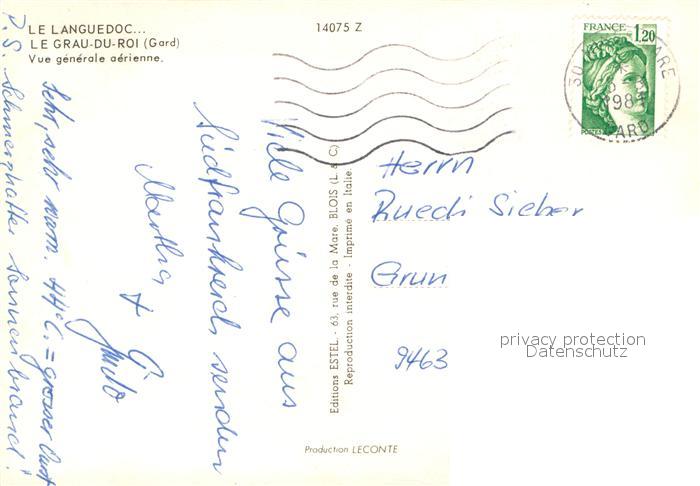 LE LANGUEDOC...
LE GRAU-DU-ROI (Gard)
Vue générale aérienne.
14075 Z
FRANCE
1,20
POSTES
30
ARE
198
GARD
Viele Grüsse aus
Südfrankreich senden
Martha
+ Guido
Sehr, sehr warm. 44°C. = grosser Durst
P.S. Schmerzhafter Sonnenbrand!
Editions ESTEL. - 63, rue de la Mare. BLOIS (L. & C)
Reproduction interdite - Imprimé en Italie.
Herrn
Ruedi Sieber
Grun
9463
privacy protection
Datenschutz
Production LECONTE